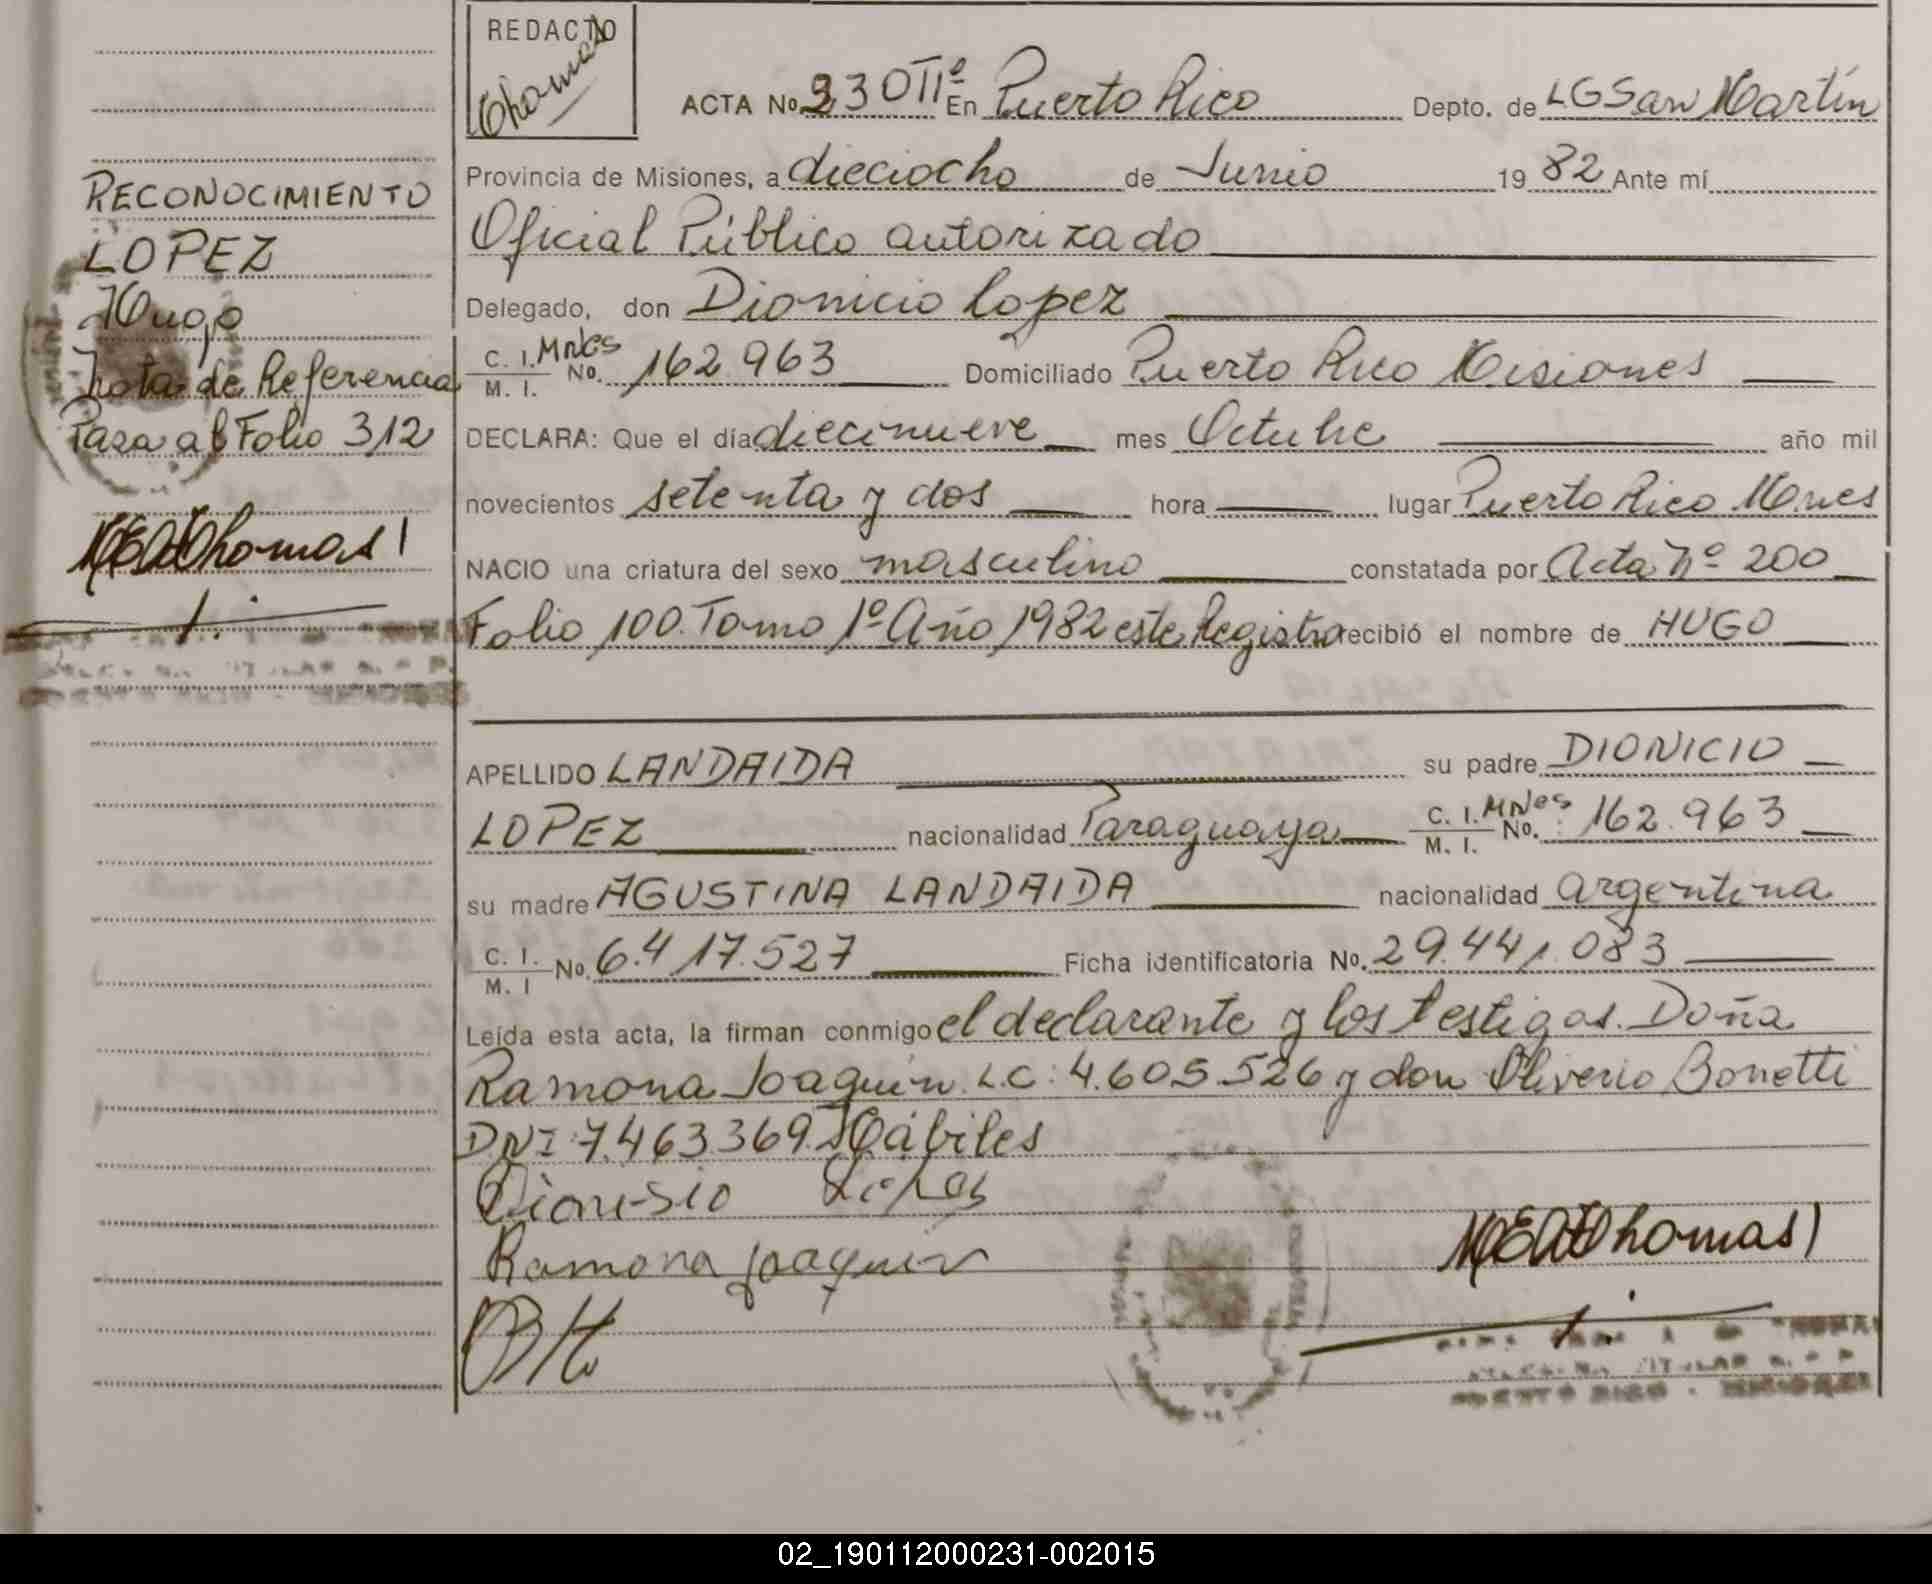 REDACTO
Thomas
ACTA No. 330 TIIº En Puerto Rico Depto. de LG San Martín
Provincia de Misiones, a dieciocho de Junio 1982 Ante mí
Oficial Público autorizado
Delegado, don Dionicio Lopez
C. I. M. I. Mnes No. 162.963 Domiciliado Puerto Rico Misiones
DECLARA: Que el día diecinueve mes Octubre año mil
novecientos setenta y dos hora lugar Puerto Rico Mnes
NACIO una criatura del sexo masculino constatada por Acta Nº 200
Folio 100. Tomo 1º Año 1982 este Registro recibió el nombre de HUGO
APELLIDO LANDAIDA su padre DIONICIO
LOPEZ nacionalidad Paraguaya C. I. M. I. MNes No. 162.963
su madre AGUSTINA LANDAIDA nacionalidad argentina
C. I. M. I No. 6.417.527 Ficha identificatoria No. 29.441.083
Leída esta acta, la firman conmigo el declarante y los testigos. Doña
Ramona Joaquin L.C: 4.605.526 y don Oliverio Bonetti
DNI 7.463.369. Hábiles
Dionisio Lopes
Ramona Joaquin
Thomas
RECONOCIMIENTO
LOPEZ
Hugo
Nota de Referencia
Pasa al Folio 312
Thomas
02_190112000231-002015